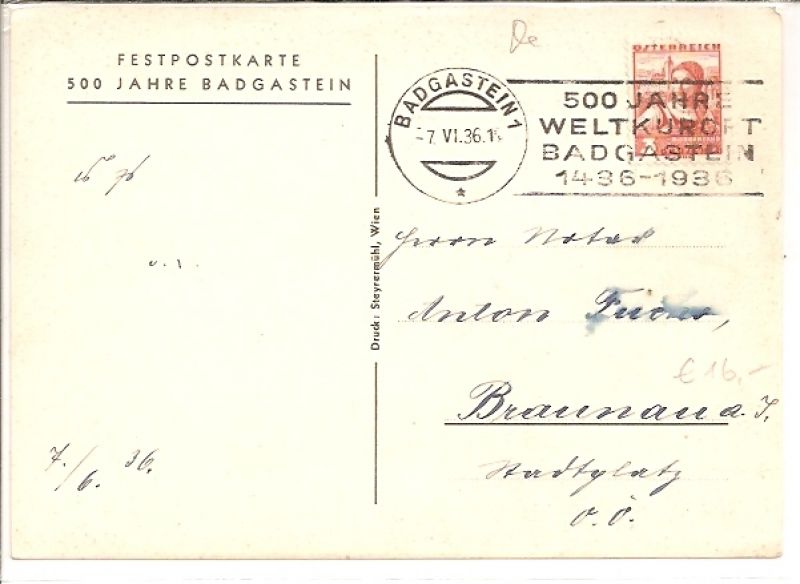 FESTPOSTKARTE
500 JAHRE BADGASTEIN
BADGASTEIN 1
-7. VI. 36.1
ÖSTERREICH
500 JAHRE
WELTKURORT
BADGASTEIN
1436-1936
Herrn Notar
Anton Fuchs,
Braunau a. I.
Stadtplatz
O. Ö.
€ 16,-
7./6. 36.
Druck: Steyrermühl, Wien